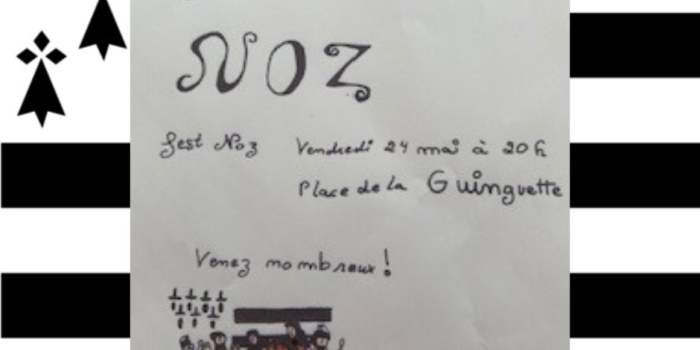 NOZ
fest Noz Vendredi 24 mai à 20h
Place de la Guinguette
Venez nombreux !